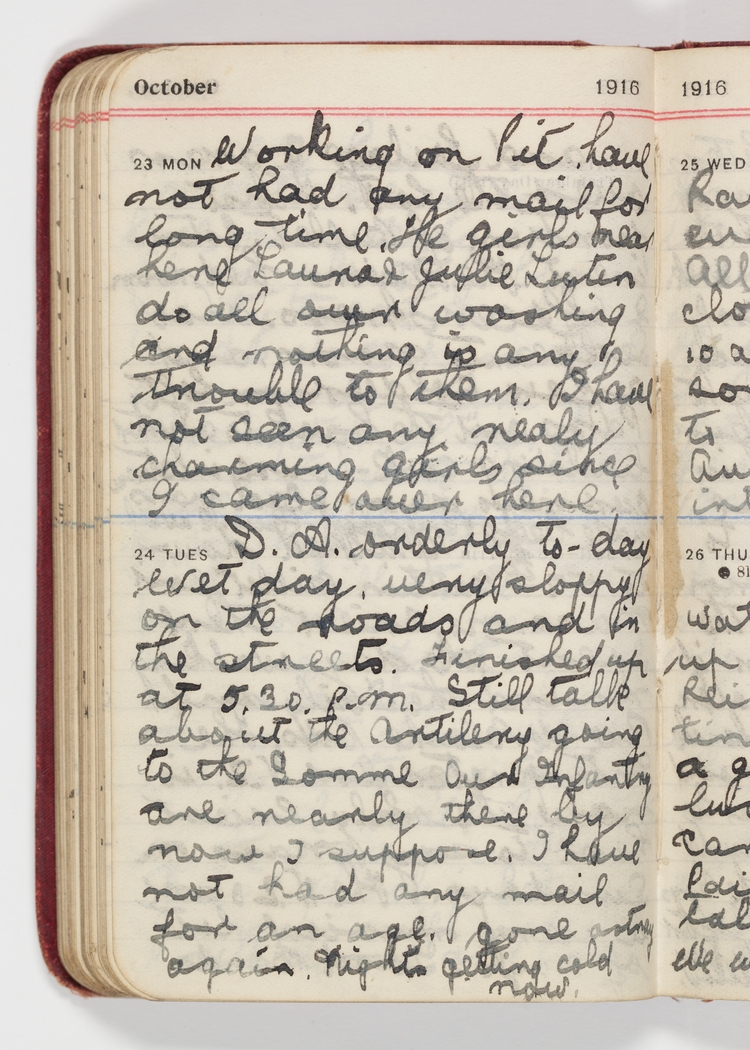 October 1916
23 MON Working on Pit. have
not had any mail for
long time. The girls near
here Laura & Julie
do all our washing
and nothing is any
trouble to them. I have
not seen any nealy
charming girls since
I came over here.
24 TUES D. A. orderly to-day
Wet day, very sloppy
on the roads and in
the streets. Finished up
at 5.30. p.m. Still talk
about the Artilery going
to the Somme Our Infantry
are nearly there by
now I suppose. I have
not had any mail
for an age. gone astray
again. Nights getting cold
now.
1916
25 WED
Ra
cu
All
clo
10 a
so
to
Au
int
26 THU
81
wat
up
Rei
tin
a g
lui
can
Pai
tal
We w